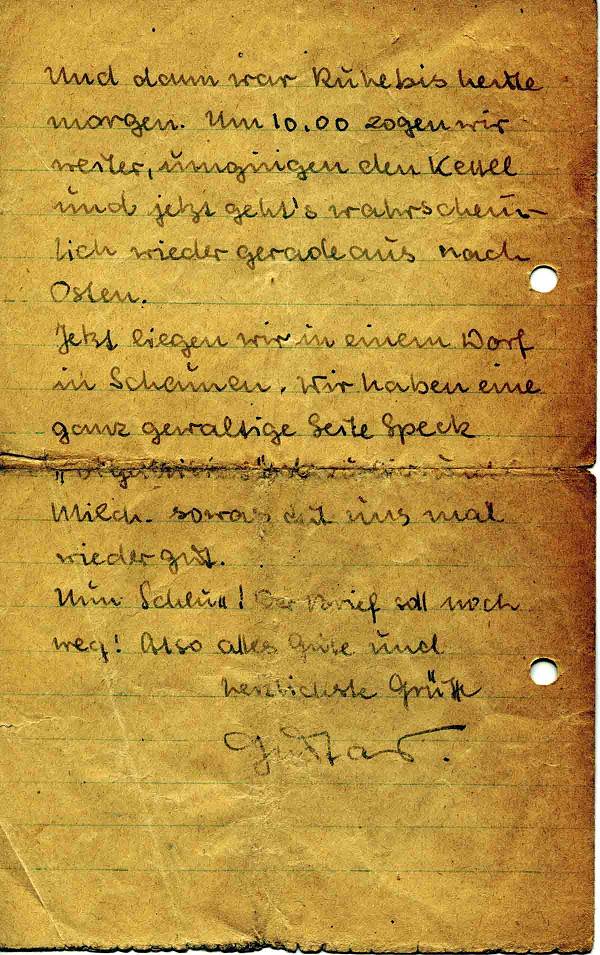 Und dann war Ruhe bis heute
morgen. Um 10.00 zogen wir
weiter, umgingen den Kessel
und jetzt geht's wahrschein-
lich wieder geradeaus nach
Osten.
Jetzt liegen wir in einem Dorf
in Scheunen. Wir haben eine
ganz gewaltige Seite Speck
Milch. sowas tut uns mal
wieder gut.
Nun Schluß! Der Brief soll noch
weg! Also alles Gute und
herzlichste Grüße
Gustav.